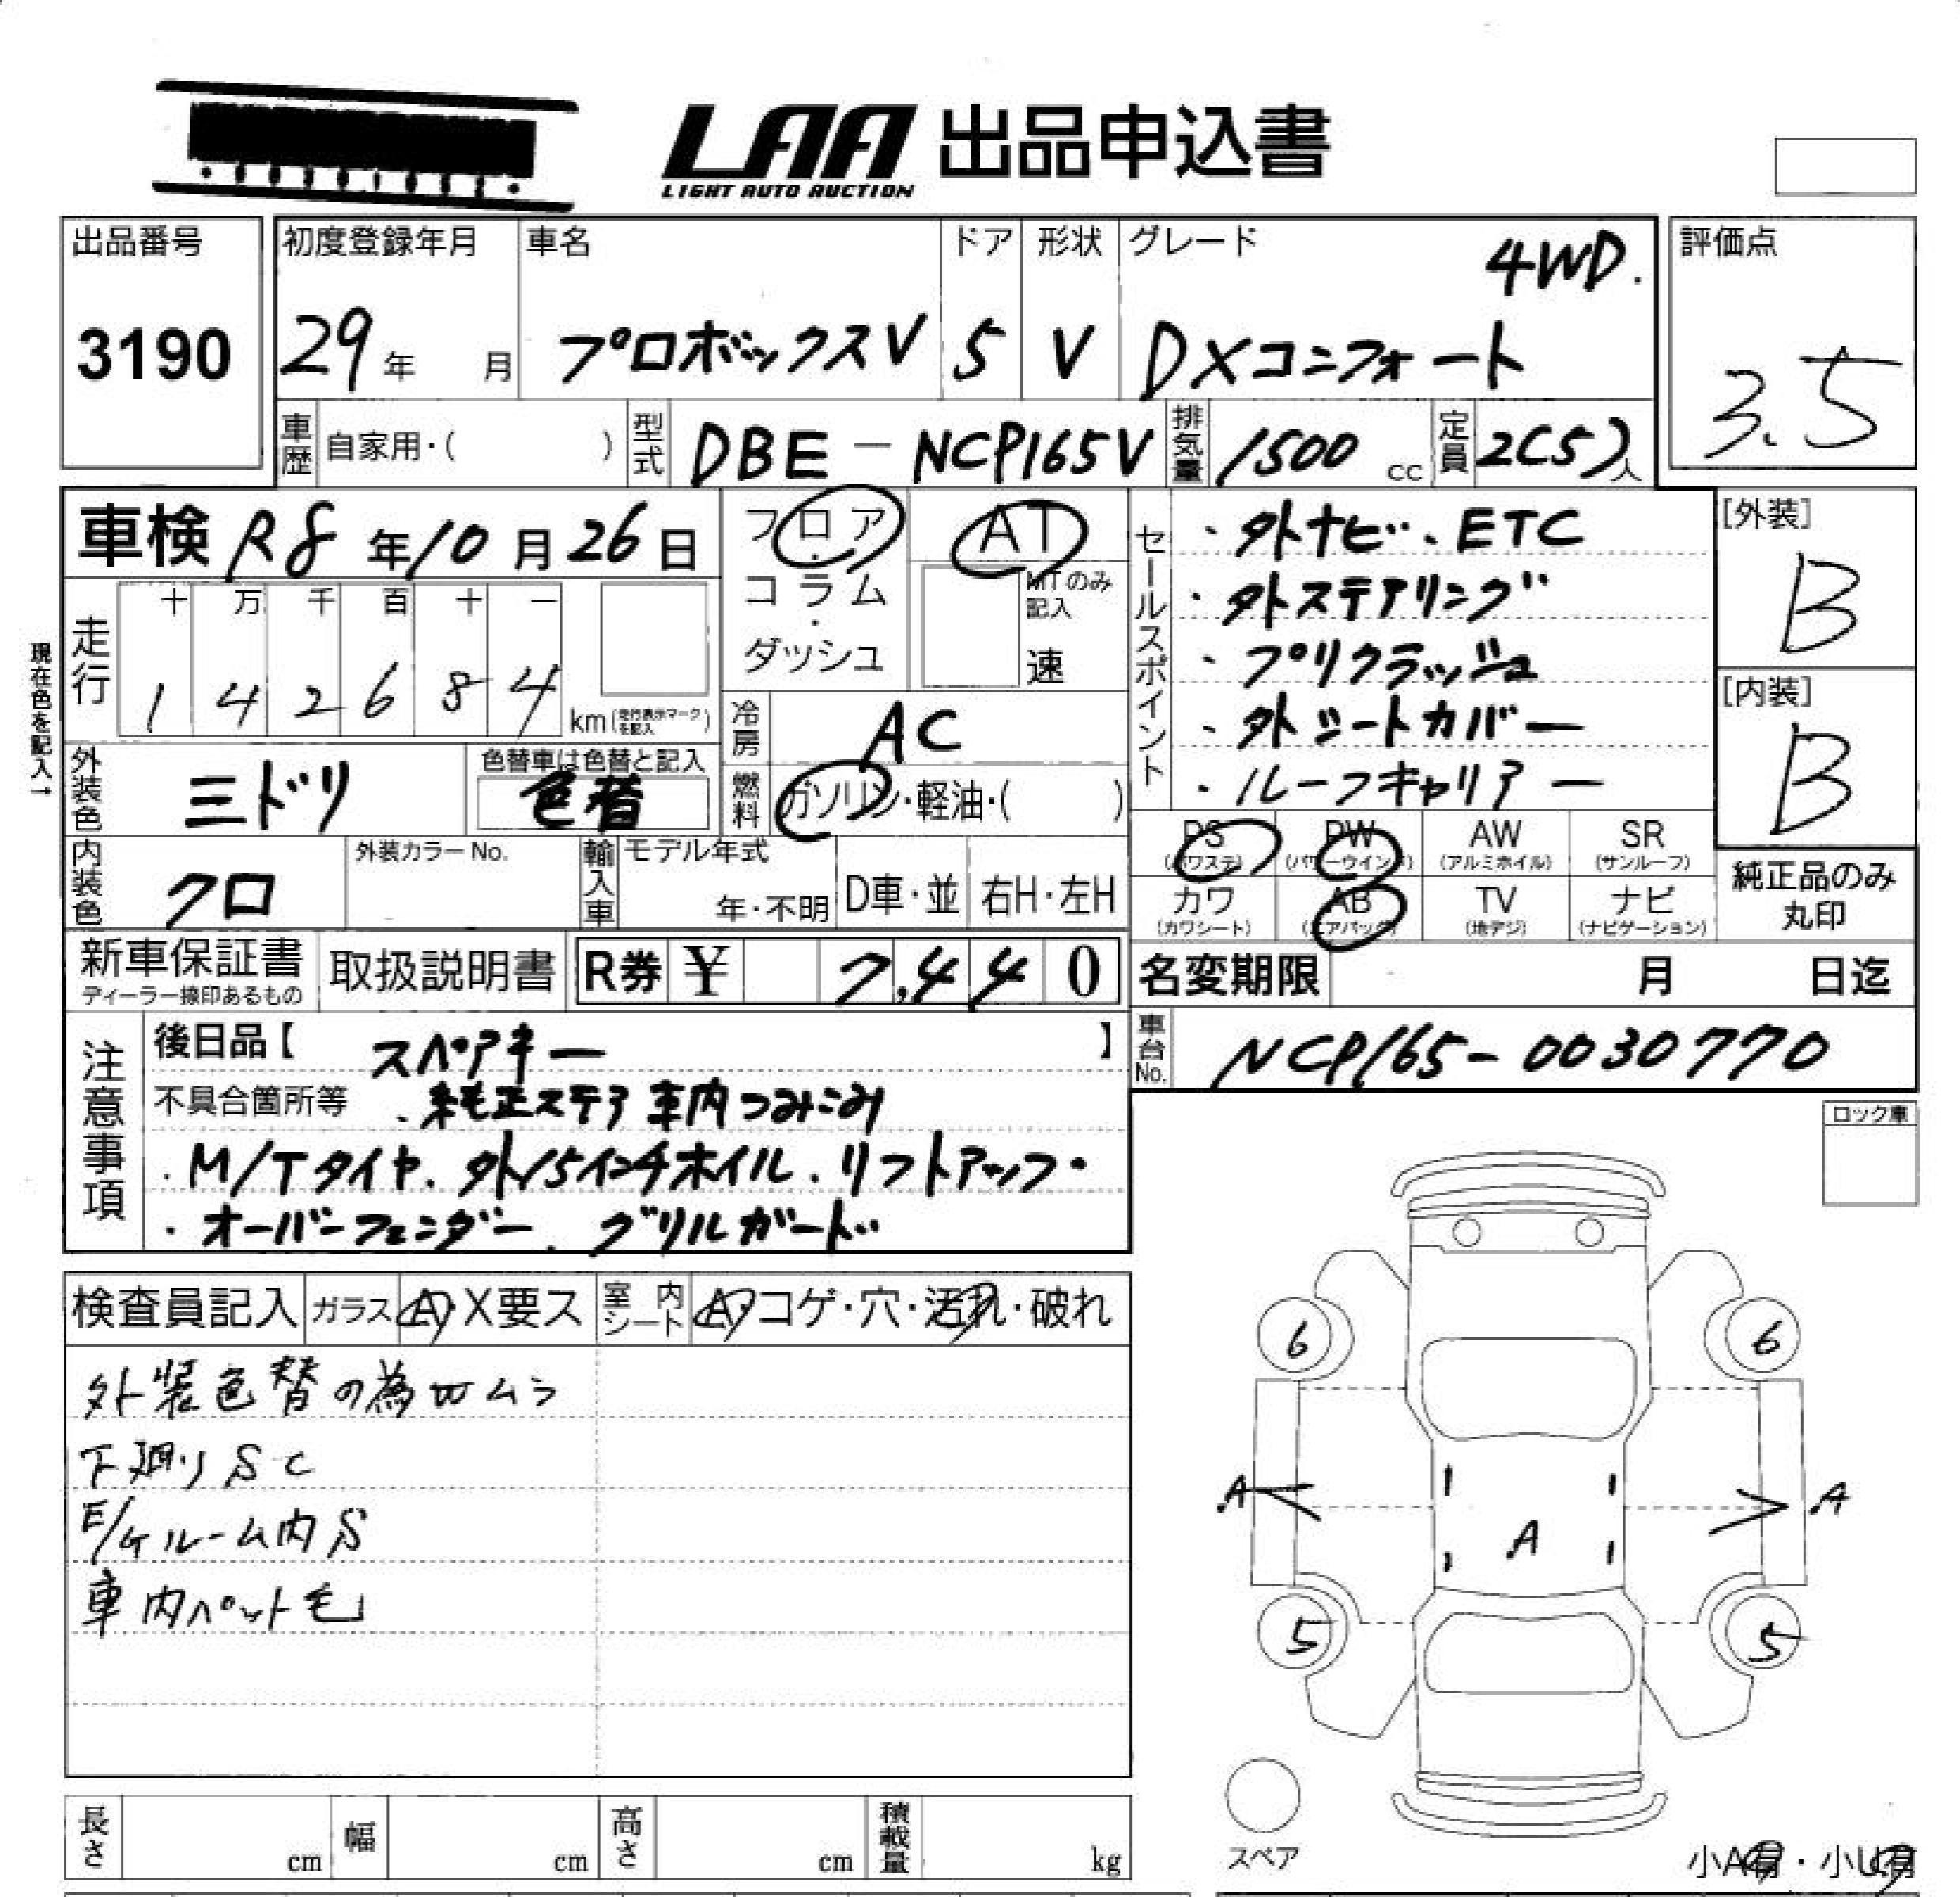 LAA 出品申込書
LIGHT AUTO AUCTION
出品番号
3190
初度登録年月
29年 月
車名
プロボックスV
ドア
5
形状
V
グレード
4WD.
DXコンフォート
評価点
3.5
車歴 自家用・( )
型式 DBE-NCP165V
排気量 1500 cc
定員 2(5)人
車検 R8年10月26日
フロア・コラム・ダッシュ
AT
MTのみ記入
速
現在色を記入→
走行
十 万 千 百 十 一
1 4 2 6 8 4
km(走行表示マークを記入)
冷房 AC
外装色 ミドリ
色替車は色替と記入
色替
燃料 ガソリン・軽油・( )
内装色 クロ
外装カラーNo.
輸入車 モデル年式
年・不明
D車・並
右H・左H
セールスポイント
・外ナビ、ETC
・外ステアリング
・プリクラッシュ
・外シートカバー
・ルーフキャリアー
[外装]
B
[内装]
B
PS (パワステ)
PW (パワーウインド)
AW (アルミホイル)
SR (サンルーフ)
カワ (カワシート)
AB (エアバック)
TV (地デジ)
ナビ (ナビゲーション)
純正品のみ丸印
新車保証書
ディーラー捺印あるもの
取扱説明書
R券 ¥ 7,440
名変期限 月 日迄
車台No. NCP165-0030770
注意事項
後日品【 スペアキー 】
不具合箇所等 ・純正ステア車内つみこみ
・M/Tタイヤ、外15インチホイル、リフトアップ・
・オーバーフェンダー、グリルガード
ロック車
検査員記入
ガラス A・X要ス
室内シート A・コゲ・穴・汚れ・破れ
外装色替の為Wムラ
下廻りSC
E/gルーム内S
車内ペット毛
6
6
A
A
A
5
5
スペア
長さ cm
幅 cm
高さ cm
積載量 kg
小A有・小U有